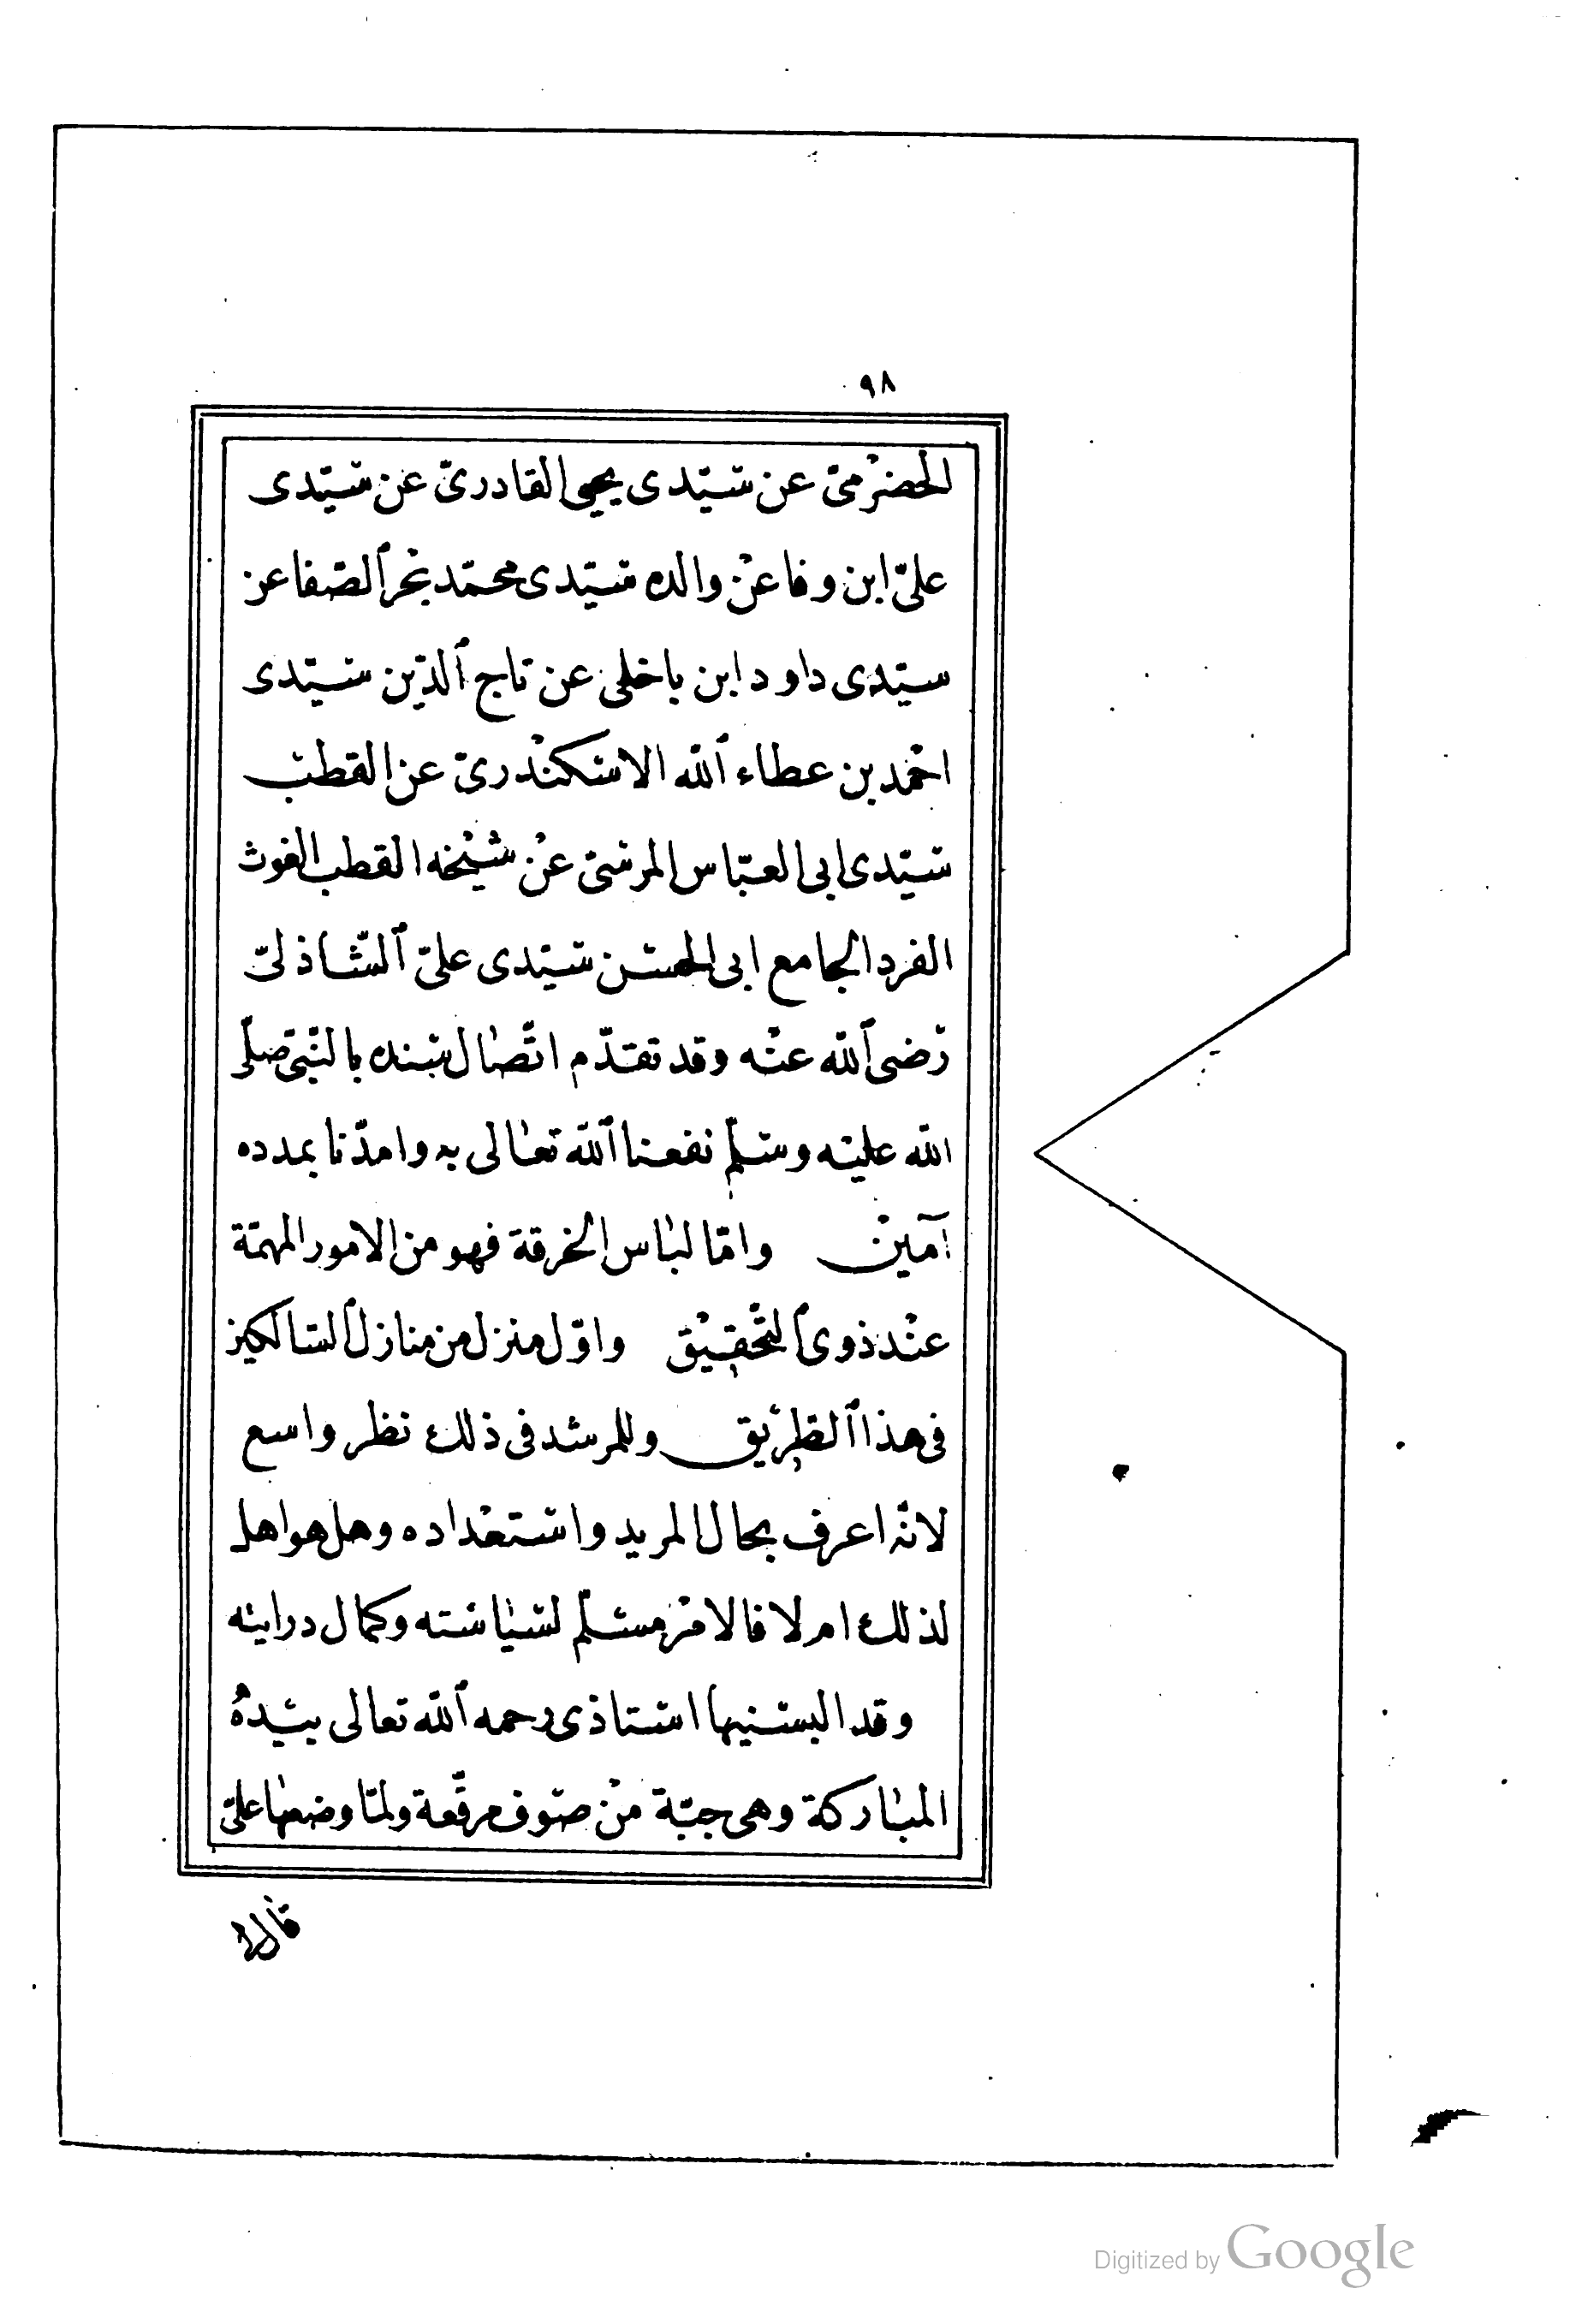 ٩٨
الحضرمىّ عن سيّدى يحيى القادرىّ عن سيّدى
علىّ ابن وفا عن والده سيّدى محمّد بحر ٱلصّفا عن
سيّدى داود ابن باخلى عن تاج ٱلدّين سيّدى
احمد بن عطاء ٱللّه الاسكندرىّ عن القطب
سيّدى ابى العبّاس المرسىّ عن شيخه القطب الغوث
الفرد الجامع ابى الحسن سيّدى علىّ ٱلشّاذلىّ
رضى ٱللّه عنه وقد تقدّم اتّصال سنده بالنّبىّ صلّى
اللّه عليه وسلّم نفعنا ٱللّه تعالى به وامدّنا بمدده
آمين وامّا لباس الخرقة فهو من الامور المهمّة
عند ذوى ٱلتّحقيق واوّل منزل من منازل ٱلسّالكين
فى هذا ٱلطّريق وللمرشد فى ذلك نظر واسع
لانّه اعرف بحال المريد واستعداده وهل هو اهل
لذلك ام لا فالامر مسلّم لسياسته وكمال درايته
وقد البسنيها استاذى رحمه ٱللّه تعالى بيده
المباركة وهى جبّة من صوف مرقّعة ولمّا وضعها علىّ
قال
Digitized by Google